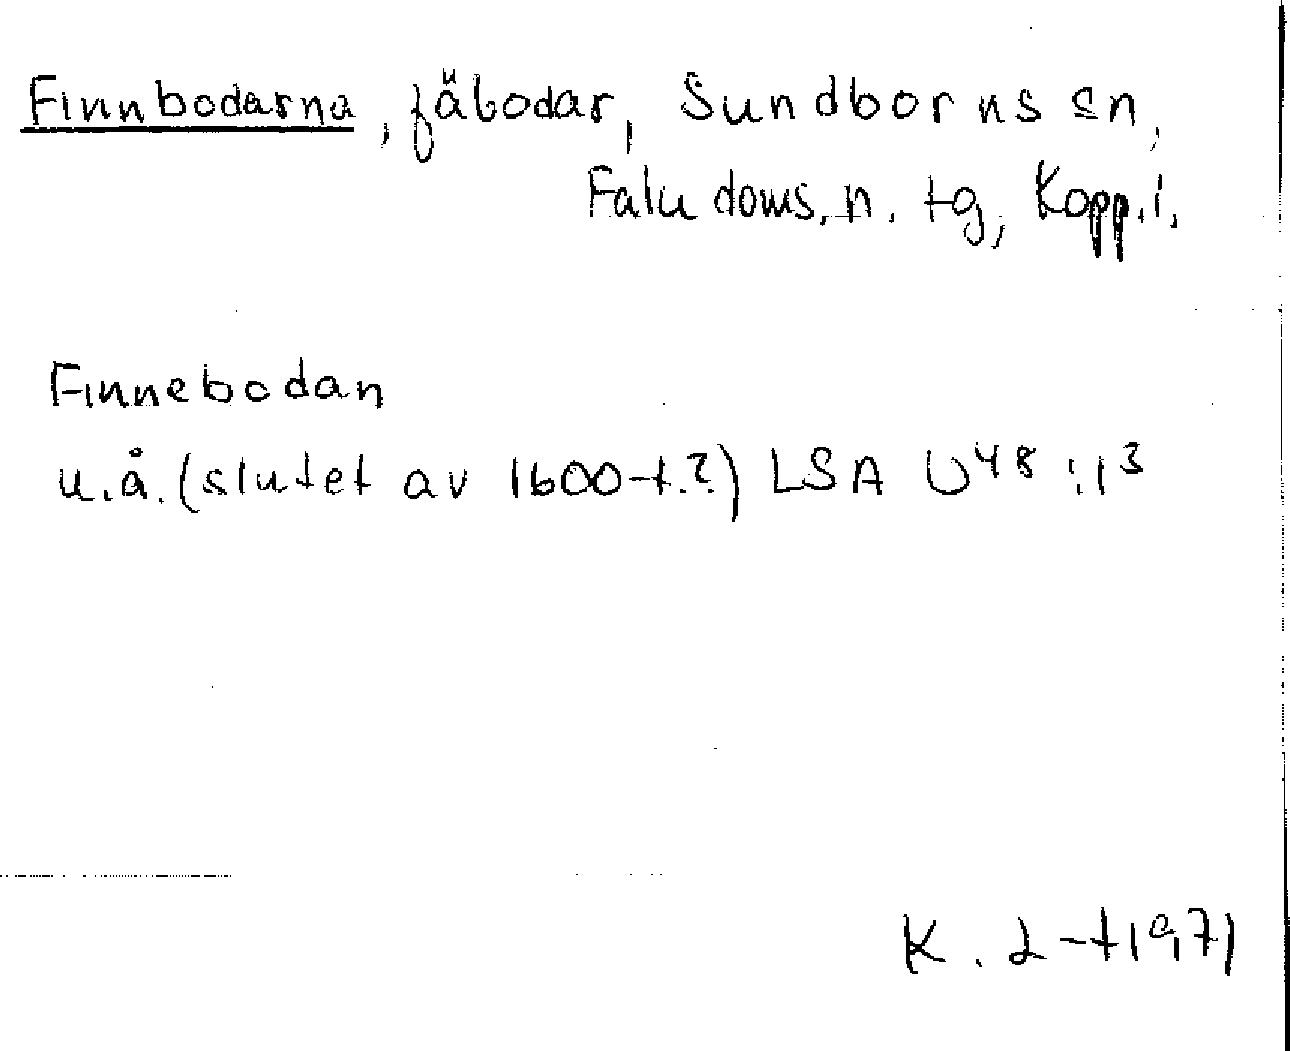 Finnbodarna, fäbodar, Sundborns sn,
Falu doms. n. tg, Kopp. l.
Finnebodan
u.å. (slutet av 1600-t.?) LSA U48:13
K. 1971